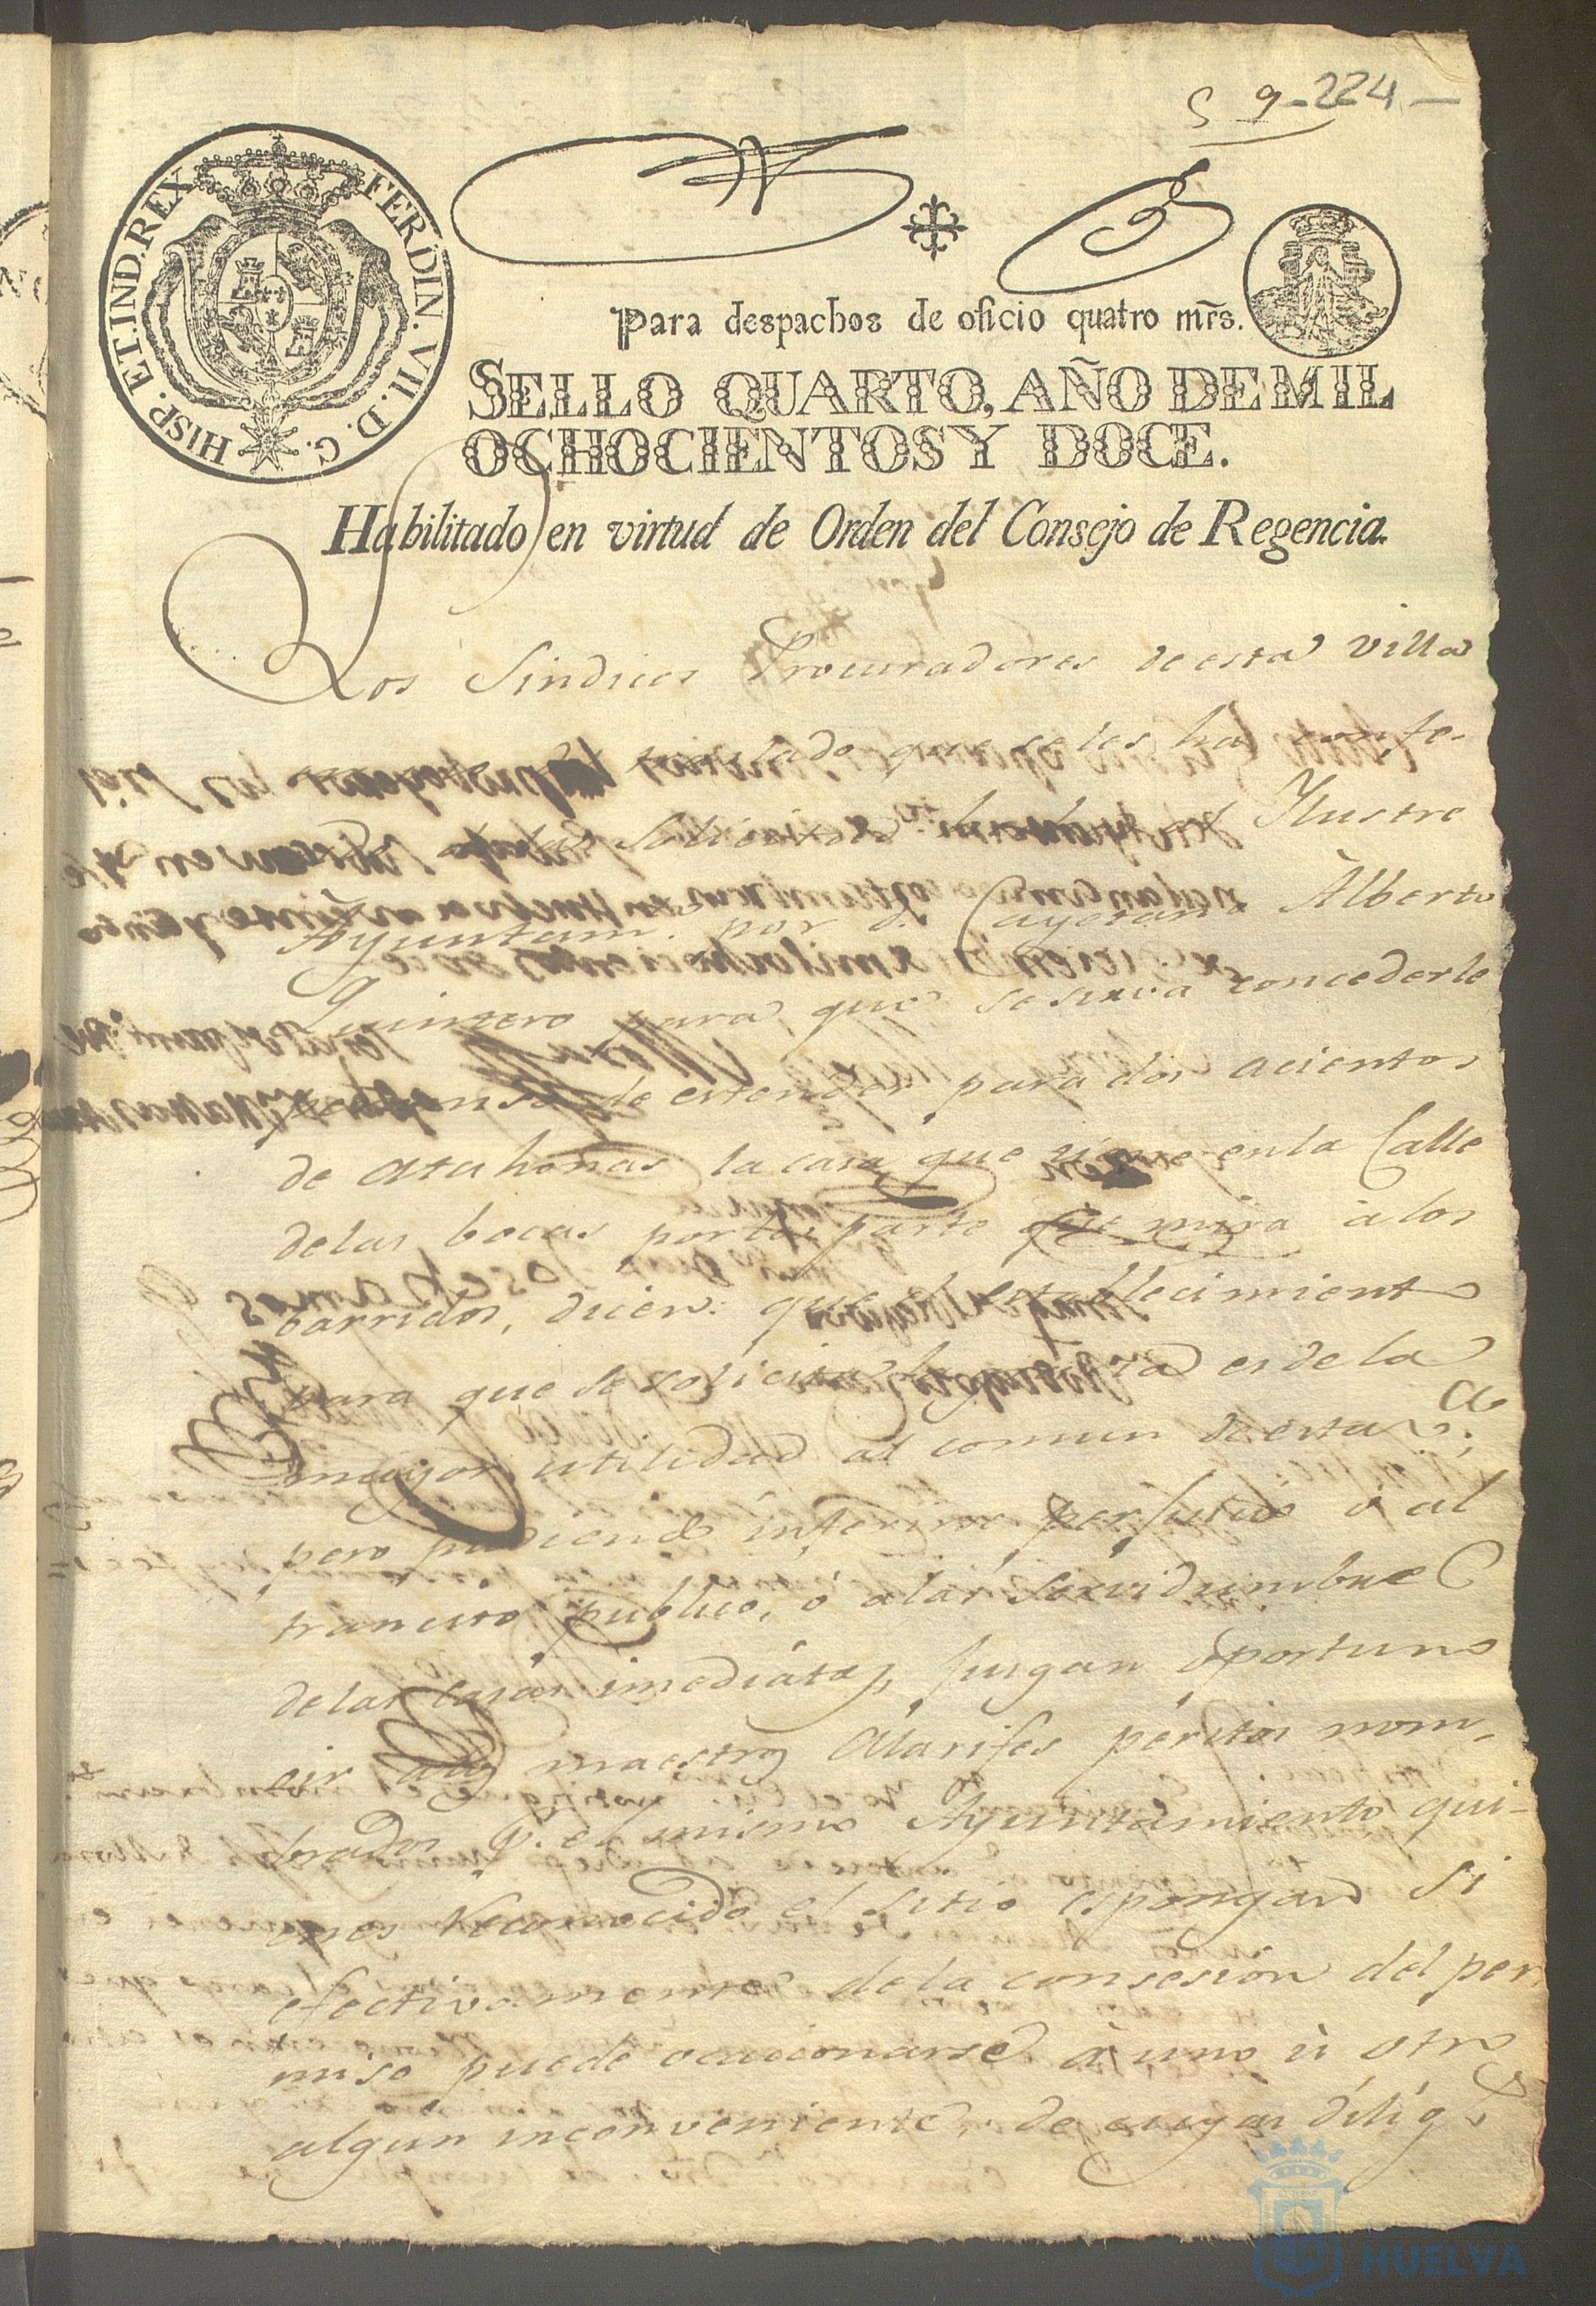 S 9-224-
HISP. ET.IND.REX FERDIN. VII. D. G.
Para despachos de oficio quatro mrs.
SELLO QUARTO, AÑO DE MIL
OCHOCIENTOS Y DOCE.
Habilitado en virtud de Orden del Consejo de Regencia.
Los Sindicos Procuradores de esta villa
traslado que se les ha confe-
solicitud hecha al Ylustre
Ayuntam.to por d. Cayetano Alberto
Quintero para que se sirva concederle
de estender para dos acientos
de atahonas la casa que tiene en la Calle
delas bocas por la parte que mira à los
barridos, dicen: que el establecimiento
para que se solicita la es de la
mayor utilidad al comun de esta v.a;
pero pudiendo inferirse perjuicio ó al
trancito publico, ó alas servidumbre
delas casas imediatas, jusgan oportuno
oir a los maestros Alarifes peritos nom-
brados p.r el mismo Ayuntamiento qui-
enes reconocido el sitio espongan si
efectivamente de la consesion del per
miso puede ocacionarse à uno ù otro
algun inconveniente, de cuyas dilig.s
HUELVA